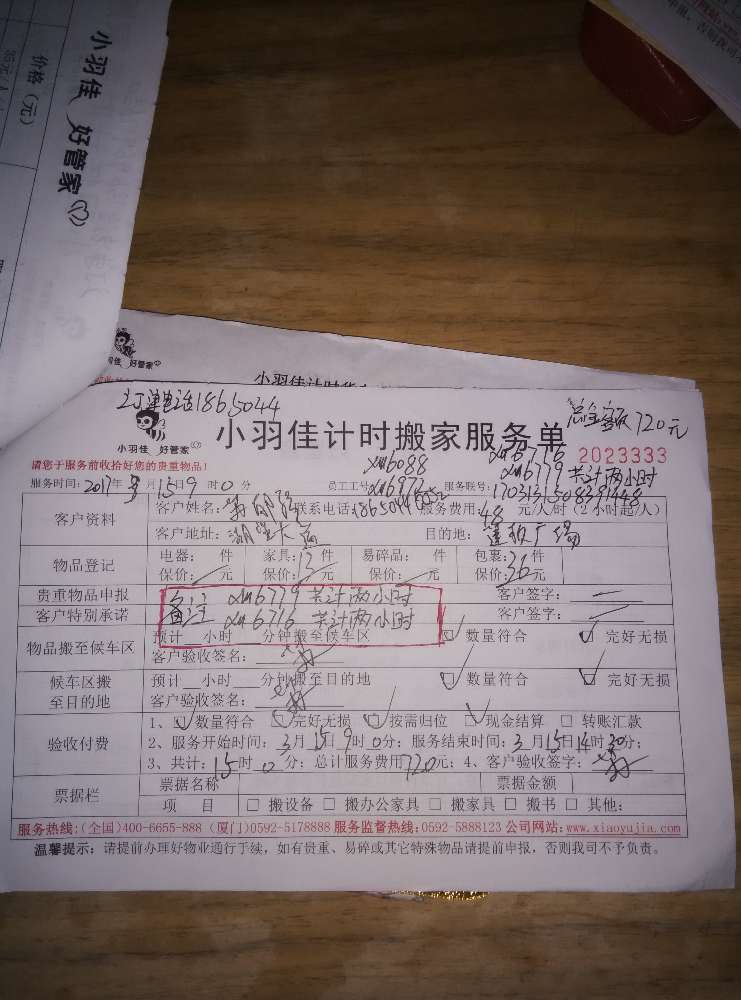 小羽佳 好管家
价格（元）
好管家
小羽佳计时
订单电话1865044
总金额720元
小羽佳 好管家
小羽佳计时搬家服务单
2023333
xm6716
xm6779 共计两小时
xm6088
xm6977
请您于服务前收拾好您的贵重物品！
服务时间：2017年3月15日9时0分 员工工号： 服务联号：
客户资料
客户姓名： 联系电话： 服务费用：48元/人/时（2小时起/人）
客户地址： 目的地：
物品登记
电器： 件 家具：13件 易碎品： 件 包裹：36件
保价： 元 保价： 元 保价： 元 保价： 元
贵重物品申报 备注 xm6779 共计两小时 客户签字：
客户特别承诺 xm6716 共计两小时 客户签字：
物品搬至候车区
预计 小时 分钟搬至候车区 ☑ 数量符合 ☑ 完好无损
客户验收签名：
候车区搬至目的地
预计 小时 分钟搬至目的地 ☑ 数量符合 ☑ 完好无损
客户验收签名：
验收付费
1、☑ 数量符合 ☑ 完好无损 ☑ 按需归位 ☑ 现金结算 □ 转账汇款
2、服务开始时间：3月15日9时0分；服务结束时间：3月15日14时30分；
3、共计：15时0分；总计服务费用720元；4、客户验收签字：
票据栏
票据名称 票据金额
项 目 □ 搬设备 □ 搬办公家具 □ 搬家具 □ 搬书 □ 其他：
服务热线：(全国)400-6655-888 (厦门)0592-5178888 服务监督热线：0592-5888123 公司网站：www.xiaoyujia.com
温馨提示：请提前办理好物业通行手续，如有贵重、易碎或其它特殊物品请提前申报，否则我司不予负责。